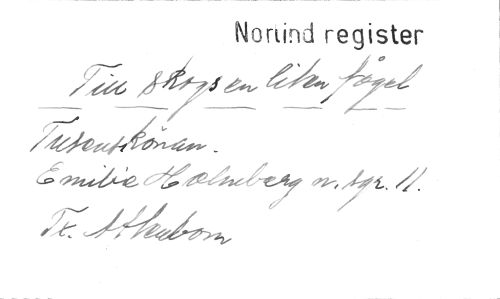 Norlind register
Till skogs en liten fågel
Tusenskönan.
Emilie Holmberg n. sgr. 11.
Tx. Atterbom